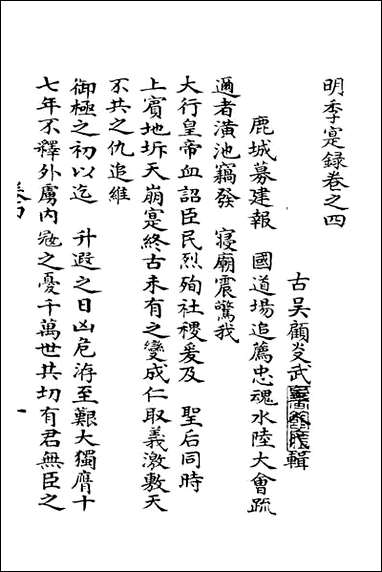 明季寔録卷之四
古吳顧炎武輯
鹿城募建報　國道場追薦忠魂水陸大會疏
邇者潢池竊發　寢廟震驚我
大行皇帝血詔臣民烈殉社稷爰及　聖后同時
上賓地坼天崩寔終古未有之變成仁取義激敷天
不共之仇追維
御極之初以迄　升遐之日凶危洊至艱大獨膺十
七年不釋外虜內寇之憂千萬世共切有君無臣之